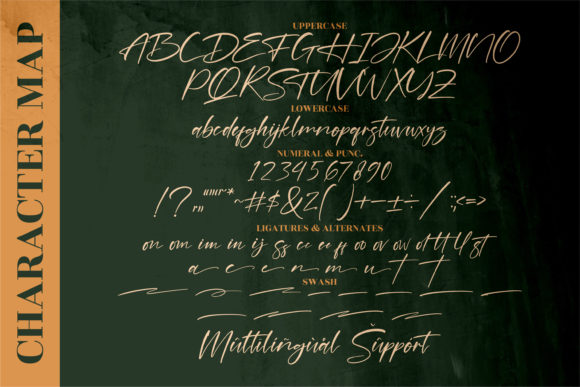 CHARACTER MAP
UPPERCASE
ABCDEFGHIJKLMNO
PQRSTUVWXYZ
LOWERCASE
abcdefghijklmnopqrstuvwxyz
NUMERAL & PUNC.
1234567890
!?~#$&Z()+-±÷/:;<=>
LIGATURES & ALTERNATES
on om im in ij gg cc ee ff oo ov ow
a c e n m u t t
SWASH
Multilingual Support